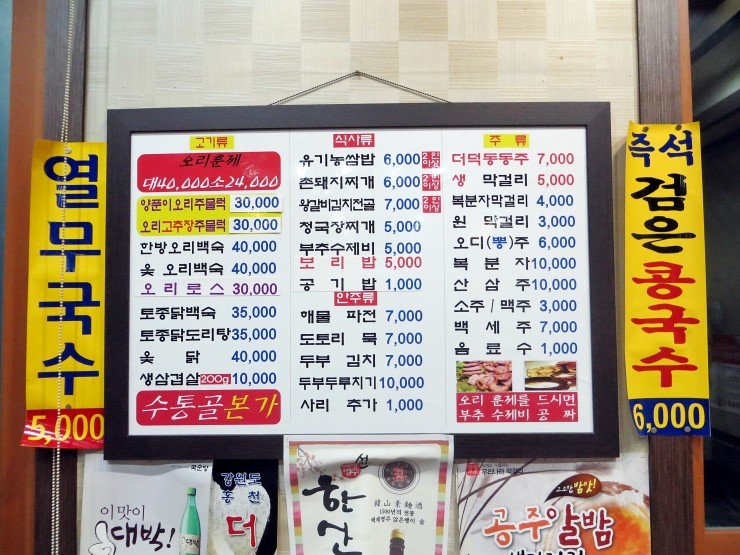 열무국수
5,000
고기류
오리훈제
대40,000소24,000
양푼이오리주물럭 30,000
오리고추장주물럭 30,000
한방오리백숙 40,000
옻 오리백숙 40,000
오리로스 30,000
토종닭백숙 35,000
토종닭도리탕 35,000
옻 닭 40,000
생삼겹살 200g 10,000
수통골본가
식사류
유기농쌈밥 6,000 2인이상
촌돼지찌개 6,000 2인이상
왕갈비김치전골 7,000 2인이상
청국장찌개 5,000
부추수제비 5,000
보리밥 5,000
공기밥 1,000
안주류
해물 파전 7,000
도토리 묵 7,000
두부 김치 7,000
두부두루치기 10,000
사리 추가 1,000
주류
더덕동동주 7,000
생 막걸리 5,000
복분자막걸리 4,000
원 막걸리 3,000
오디(뽕)주 6,000
복분자 10,000
산삼주 10,000
소주/맥주 3,000
백세주 7,000
음료수 1,000
오리 훈제를 드시면
부추 수제비 공짜
즉석 검은콩국수
6,000
국순당
이맛이
대박!
강원도
홍천
더
선
한산
韓山素麯酒
1500년의 전통
우리나라 막걸리
고소한밤맛!
공주알밤